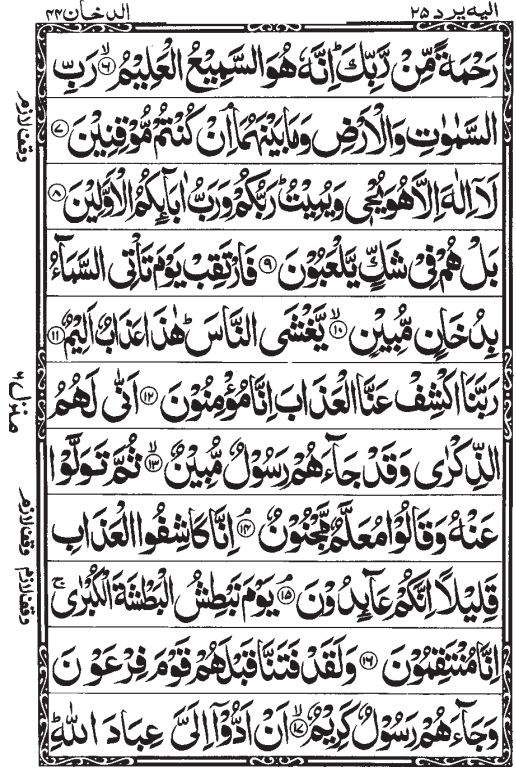 الیه یرد ۲۵
الدخان ۴۴
رَحْمَةً مِّنْ رَّبِّكَ ؕ اِنَّهٗ هُوَ السَّمِیْعُ الْعَلِیْمُ ۙ۶ رَبِّ
السَّمٰوٰتِ وَالْاَرْضِ وَمَا بَیْنَهُمَا ۘ اِنْ كُنْتُمْ مُّوْقِنِیْنَ ۷
لَاۤ اِلٰهَ اِلَّا هُوَ یُحْیٖ وَیُمِیْتُ ؕ رَبُّكُمْ وَرَبُّ اٰبَآىِٕكُمُ الْاَوَّلِیْنَ ۸
بَلْ هُمْ فِیْ شَكٍّ یَّلْعَبُوْنَ ۹ فَارْتَقِبْ یَوْمَ تَاْتِی السَّمَآءُ
بِدُخَانٍ مُّبِیْنٍ ۙ۱۰ یَّغْشَی النَّاسَ ؕ هٰذَا عَذَابٌ اَلِیْمٌ ۱۱
رَبَّنَا اكْشِفْ عَنَّا الْعَذَابَ اِنَّا مُؤْمِنُوْنَ ۱۲ اَنّٰی لَهُمُ
الذِّكْرٰی وَقَدْ جَآءَهُمْ رَسُوْلٌ مُّبِیْنٌ ۙ۱۳ ثُمَّ تَوَلَّوْا
عَنْهُ وَقَالُوْا مُعَلَّمٌ مَّجْنُوْنٌ ۘ۱۴ اِنَّا كَاشِفُوا الْعَذَابِ
قَلِیْلًا اِنَّكُمْ عَآىِٕدُوْنَ ۘ۱۵ یَوْمَ نَبْطِشُ الْبَطْشَةَ الْكُبْرٰی ۚ
اِنَّا مُنْتَقِمُوْنَ ۱۶ وَلَقَدْ فَتَنَّا قَبْلَهُمْ قَوْمَ فِرْعَوْنَ
وَجَآءَهُمْ رَسُوْلٌ كَرِیْمٌ ۙ۱۷ اَنْ اَدُّوْۤا اِلَیَّ عِبَادَ اللّٰهِ ؕ
وقف لازم
منزل ۶
وقف لازم
وقف لازم